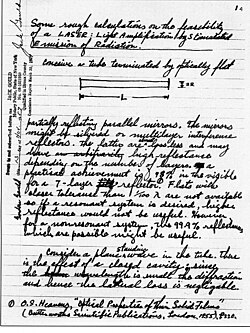 1.
Some rough calculations on the feasibility
of a LASER: Light Amplification by Stimulated
Emission of Radiation.
conceive a tube terminated by optically flat
L
partially reflecting parallel mirrors. The mirrors
might be silvered or multilayer interference
reflectors. The latter are lossless and may
have high reflectance
depending on the number of layers. A
practical achievement is 98% in the visible
for a 7-layer reflector. Flats with
closer tolerance than 1/100 λ are not available
so if a resonant system is desired, higher
reflectance would not be useful. However
for a nonresonant system, the 99.9% reflectances
which are possible might be useful.
Consider a plane standing wave in the tube. There
is the effect of a closed cavity; since
the wavelength is small the diffraction
and hence the lateral loss is negligible.
① O.S. Heavens, "Optical Properties of Thin Solid Films"
(Butterworths Scientific Publications, London, 1955), p.220.
JACK GOULD